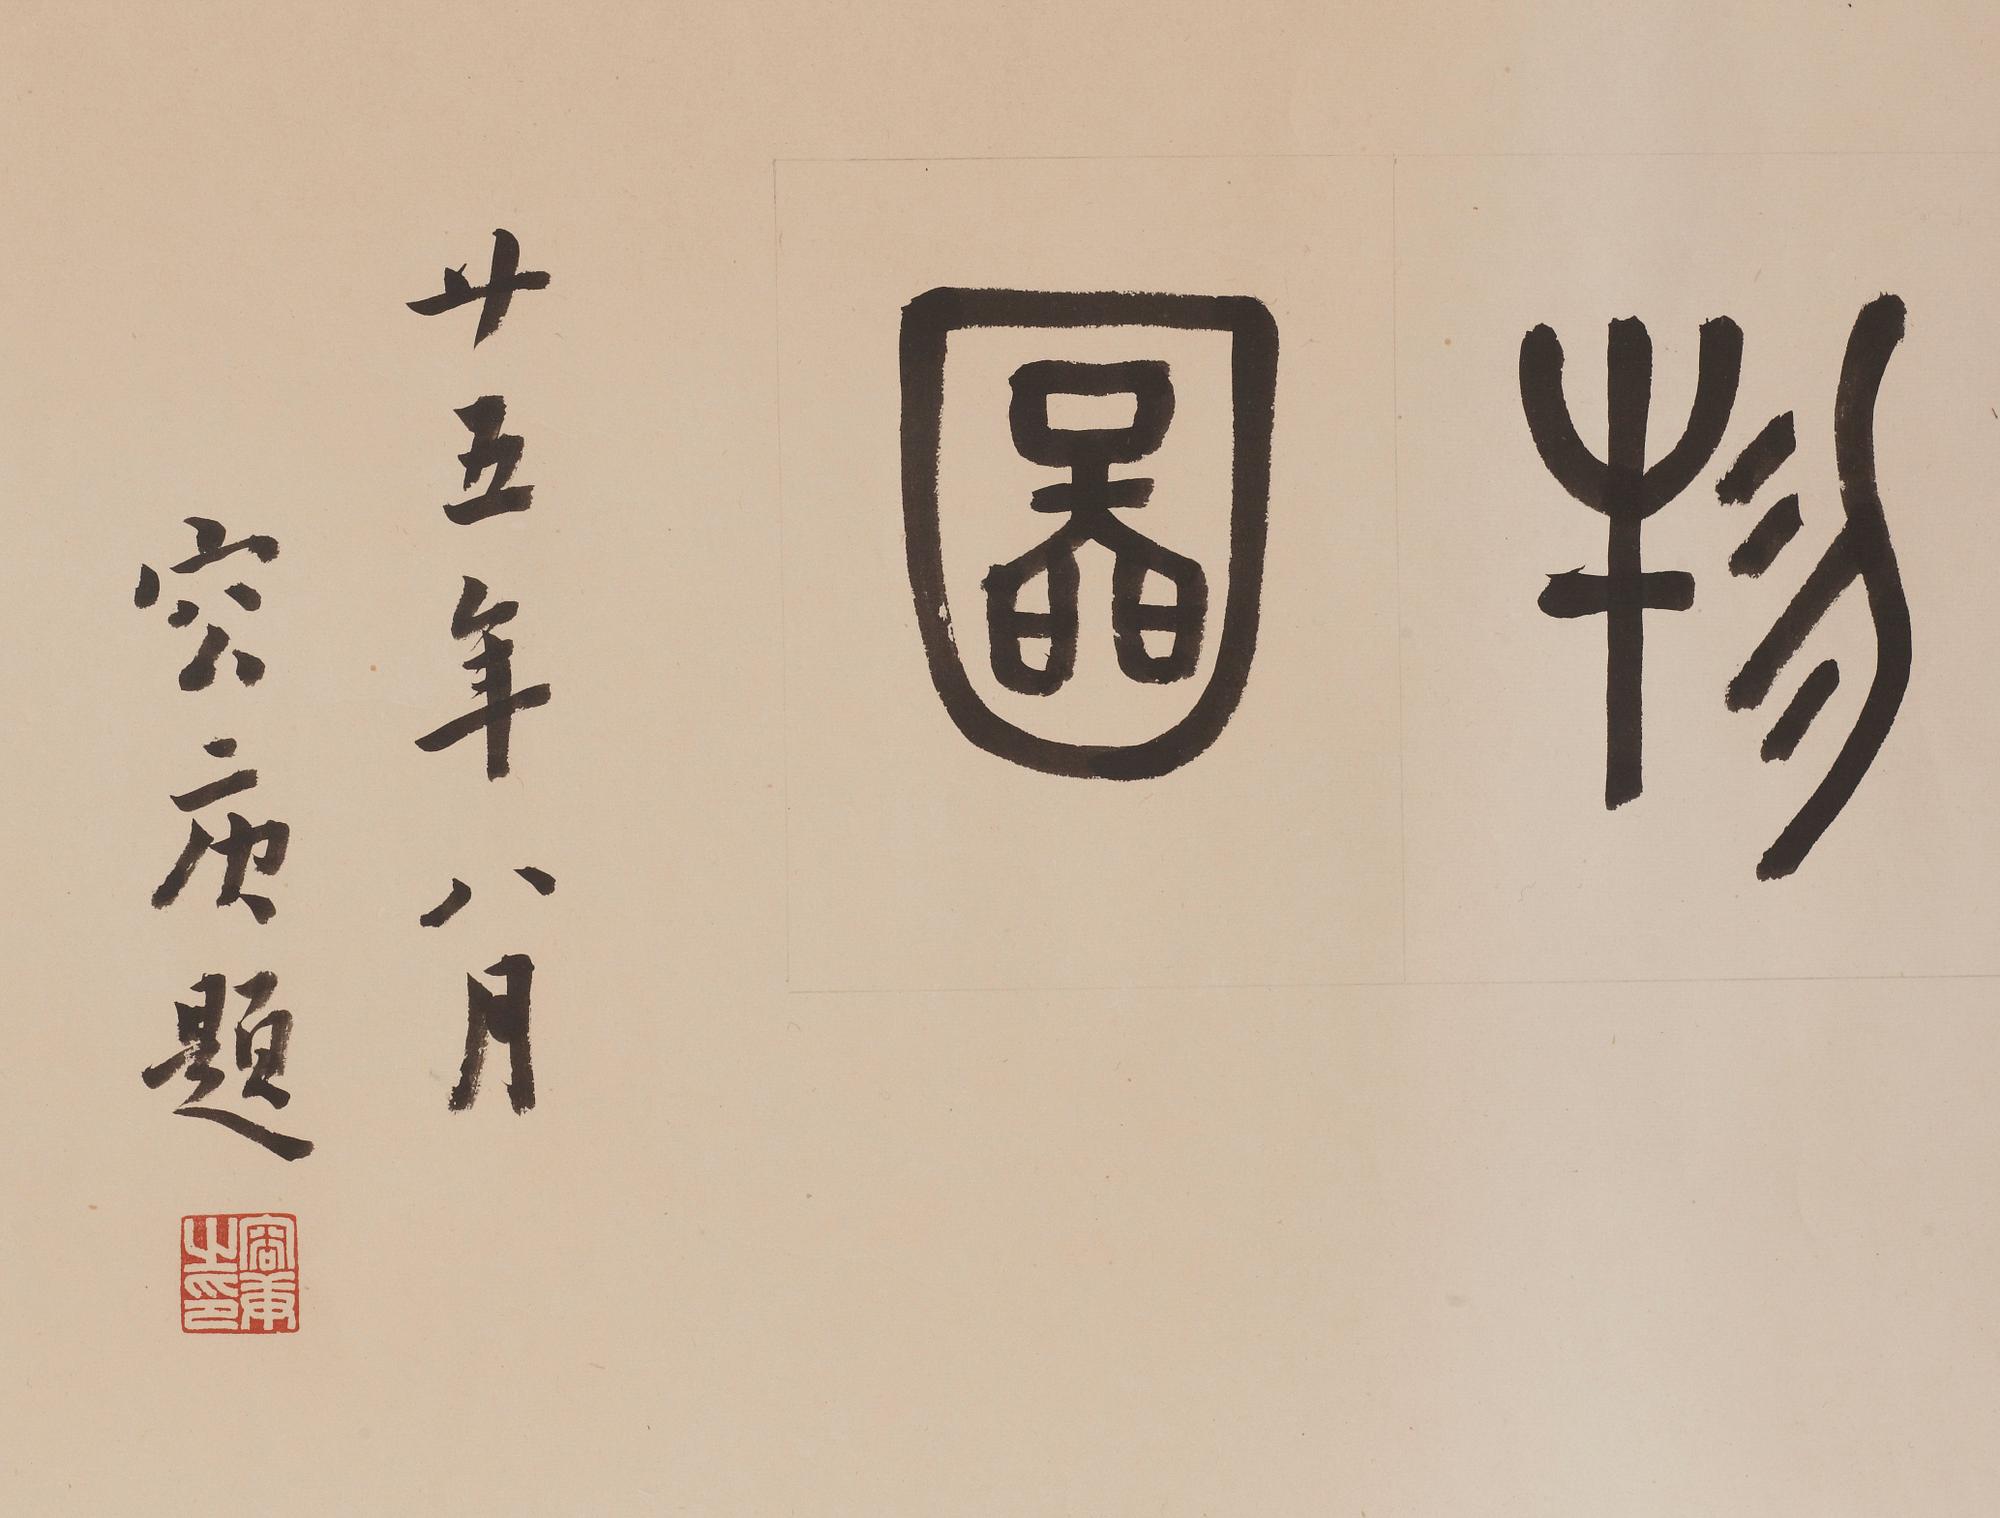 物圖
廿五年八月
容庚題
容庚之印